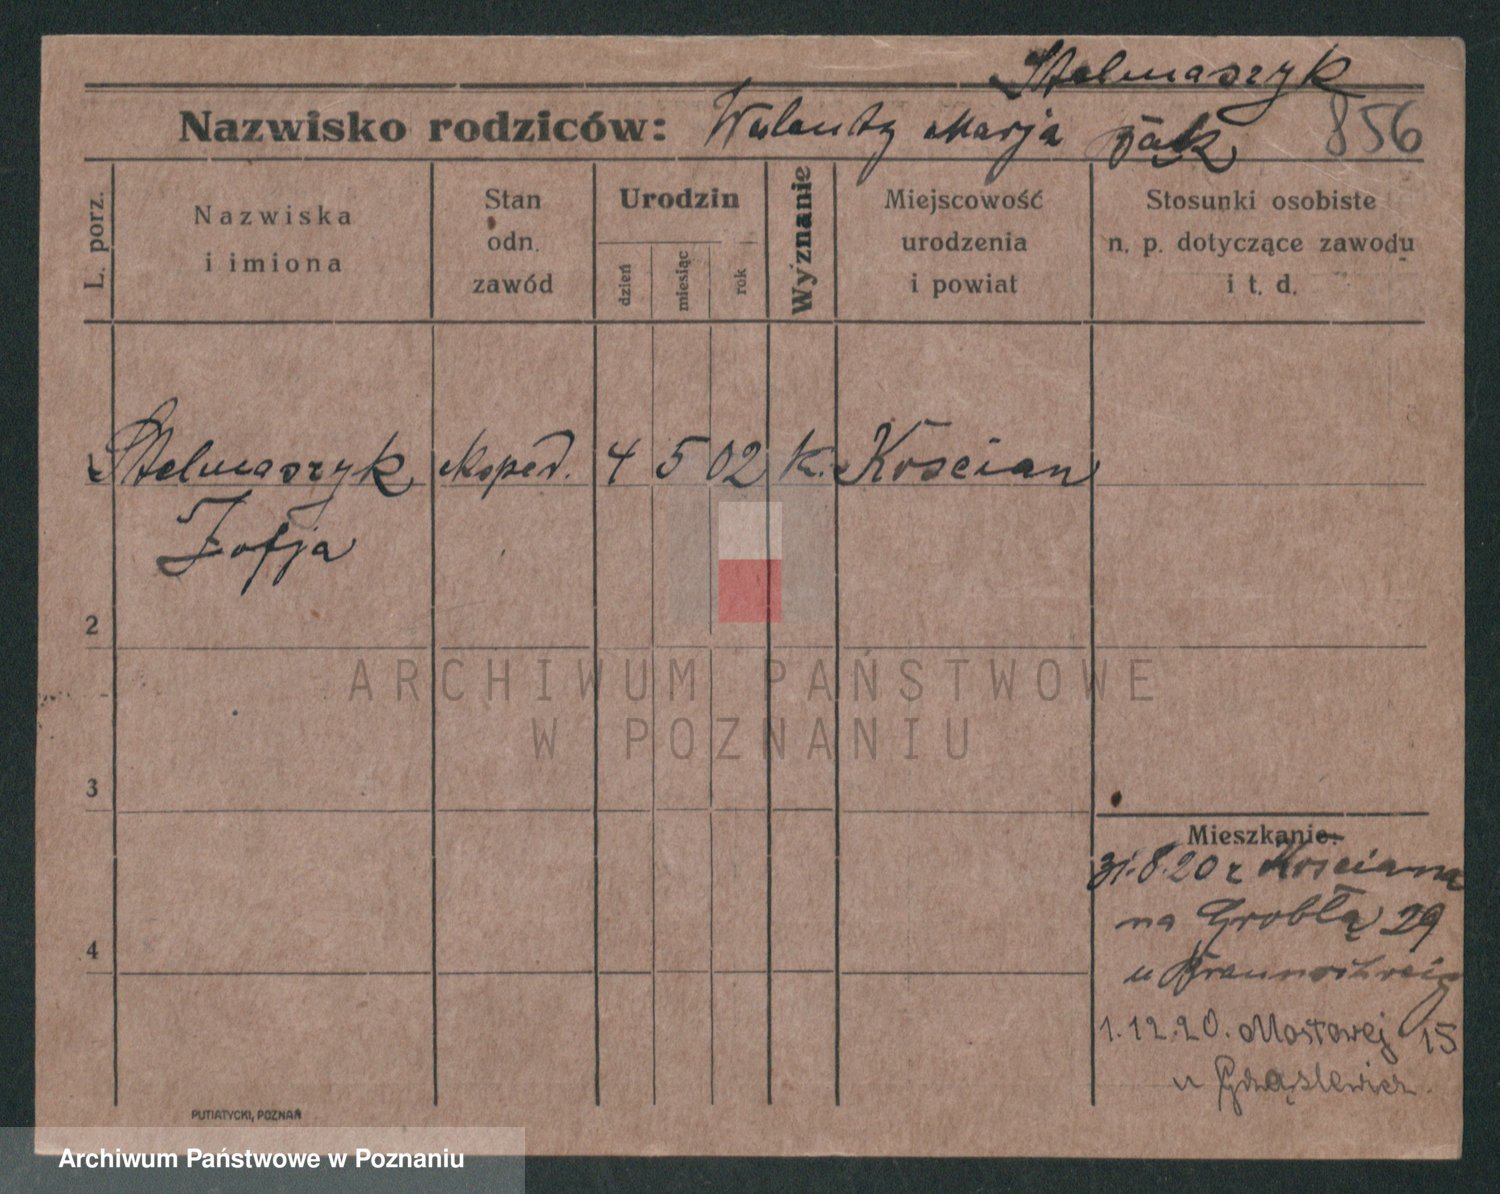 Stelmaszyk
Nazwisko rodziców: Walenty Marja Bąk 856
L. porz.
Nazwiska
i imiona
Stan
odn.
zawód
Urodzin
dzień
miesiąc
rok
Wyznanie
Miejscowość
urodzenia
i powiat
Stosunki osobiste
n. p. dotyczące zawodu
i t. d.
Stelmaszyk eksped. 4 5 02 k. Kościan
Zofja
2
ARCHIWUM PAŃSTWOWE
W POZNANIU
3
Mieszkanie:
31.8.20 z Kościana
na Groblą 29
u Braunschweig
4
1.12.20. Mostowej 15
u
PUTIATYCKI, POZNAŃ
Archiwum Państwowe w Poznaniu